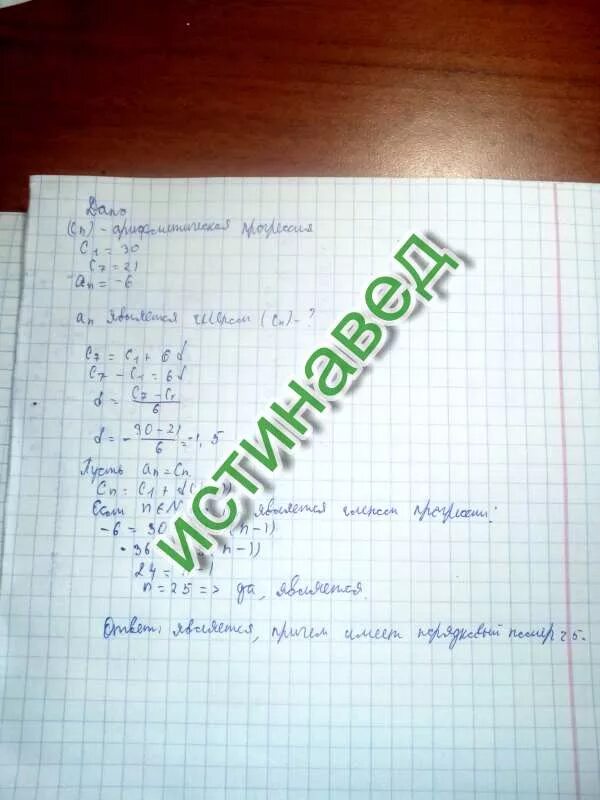 Дано
(Cn) - арифметическая прогрессия
C1 = 30
C7 = 21
an = -6
an является членом (Cn) - ?
C7 = C1 + 6d
C7 - C1 = 6d
d = (C7 - C1)/6
d = -(30-21)/6 = -1,5
Пусть an = Cn
Cn = C1 + d(
Если n∈N является членом прогрессии:
-6 = 30 (n-1))
-36 (n-1))
24 = n-1
n = 25 => да, является.
Ответ: является, причем имеет порядковый номер 25.
истинавед